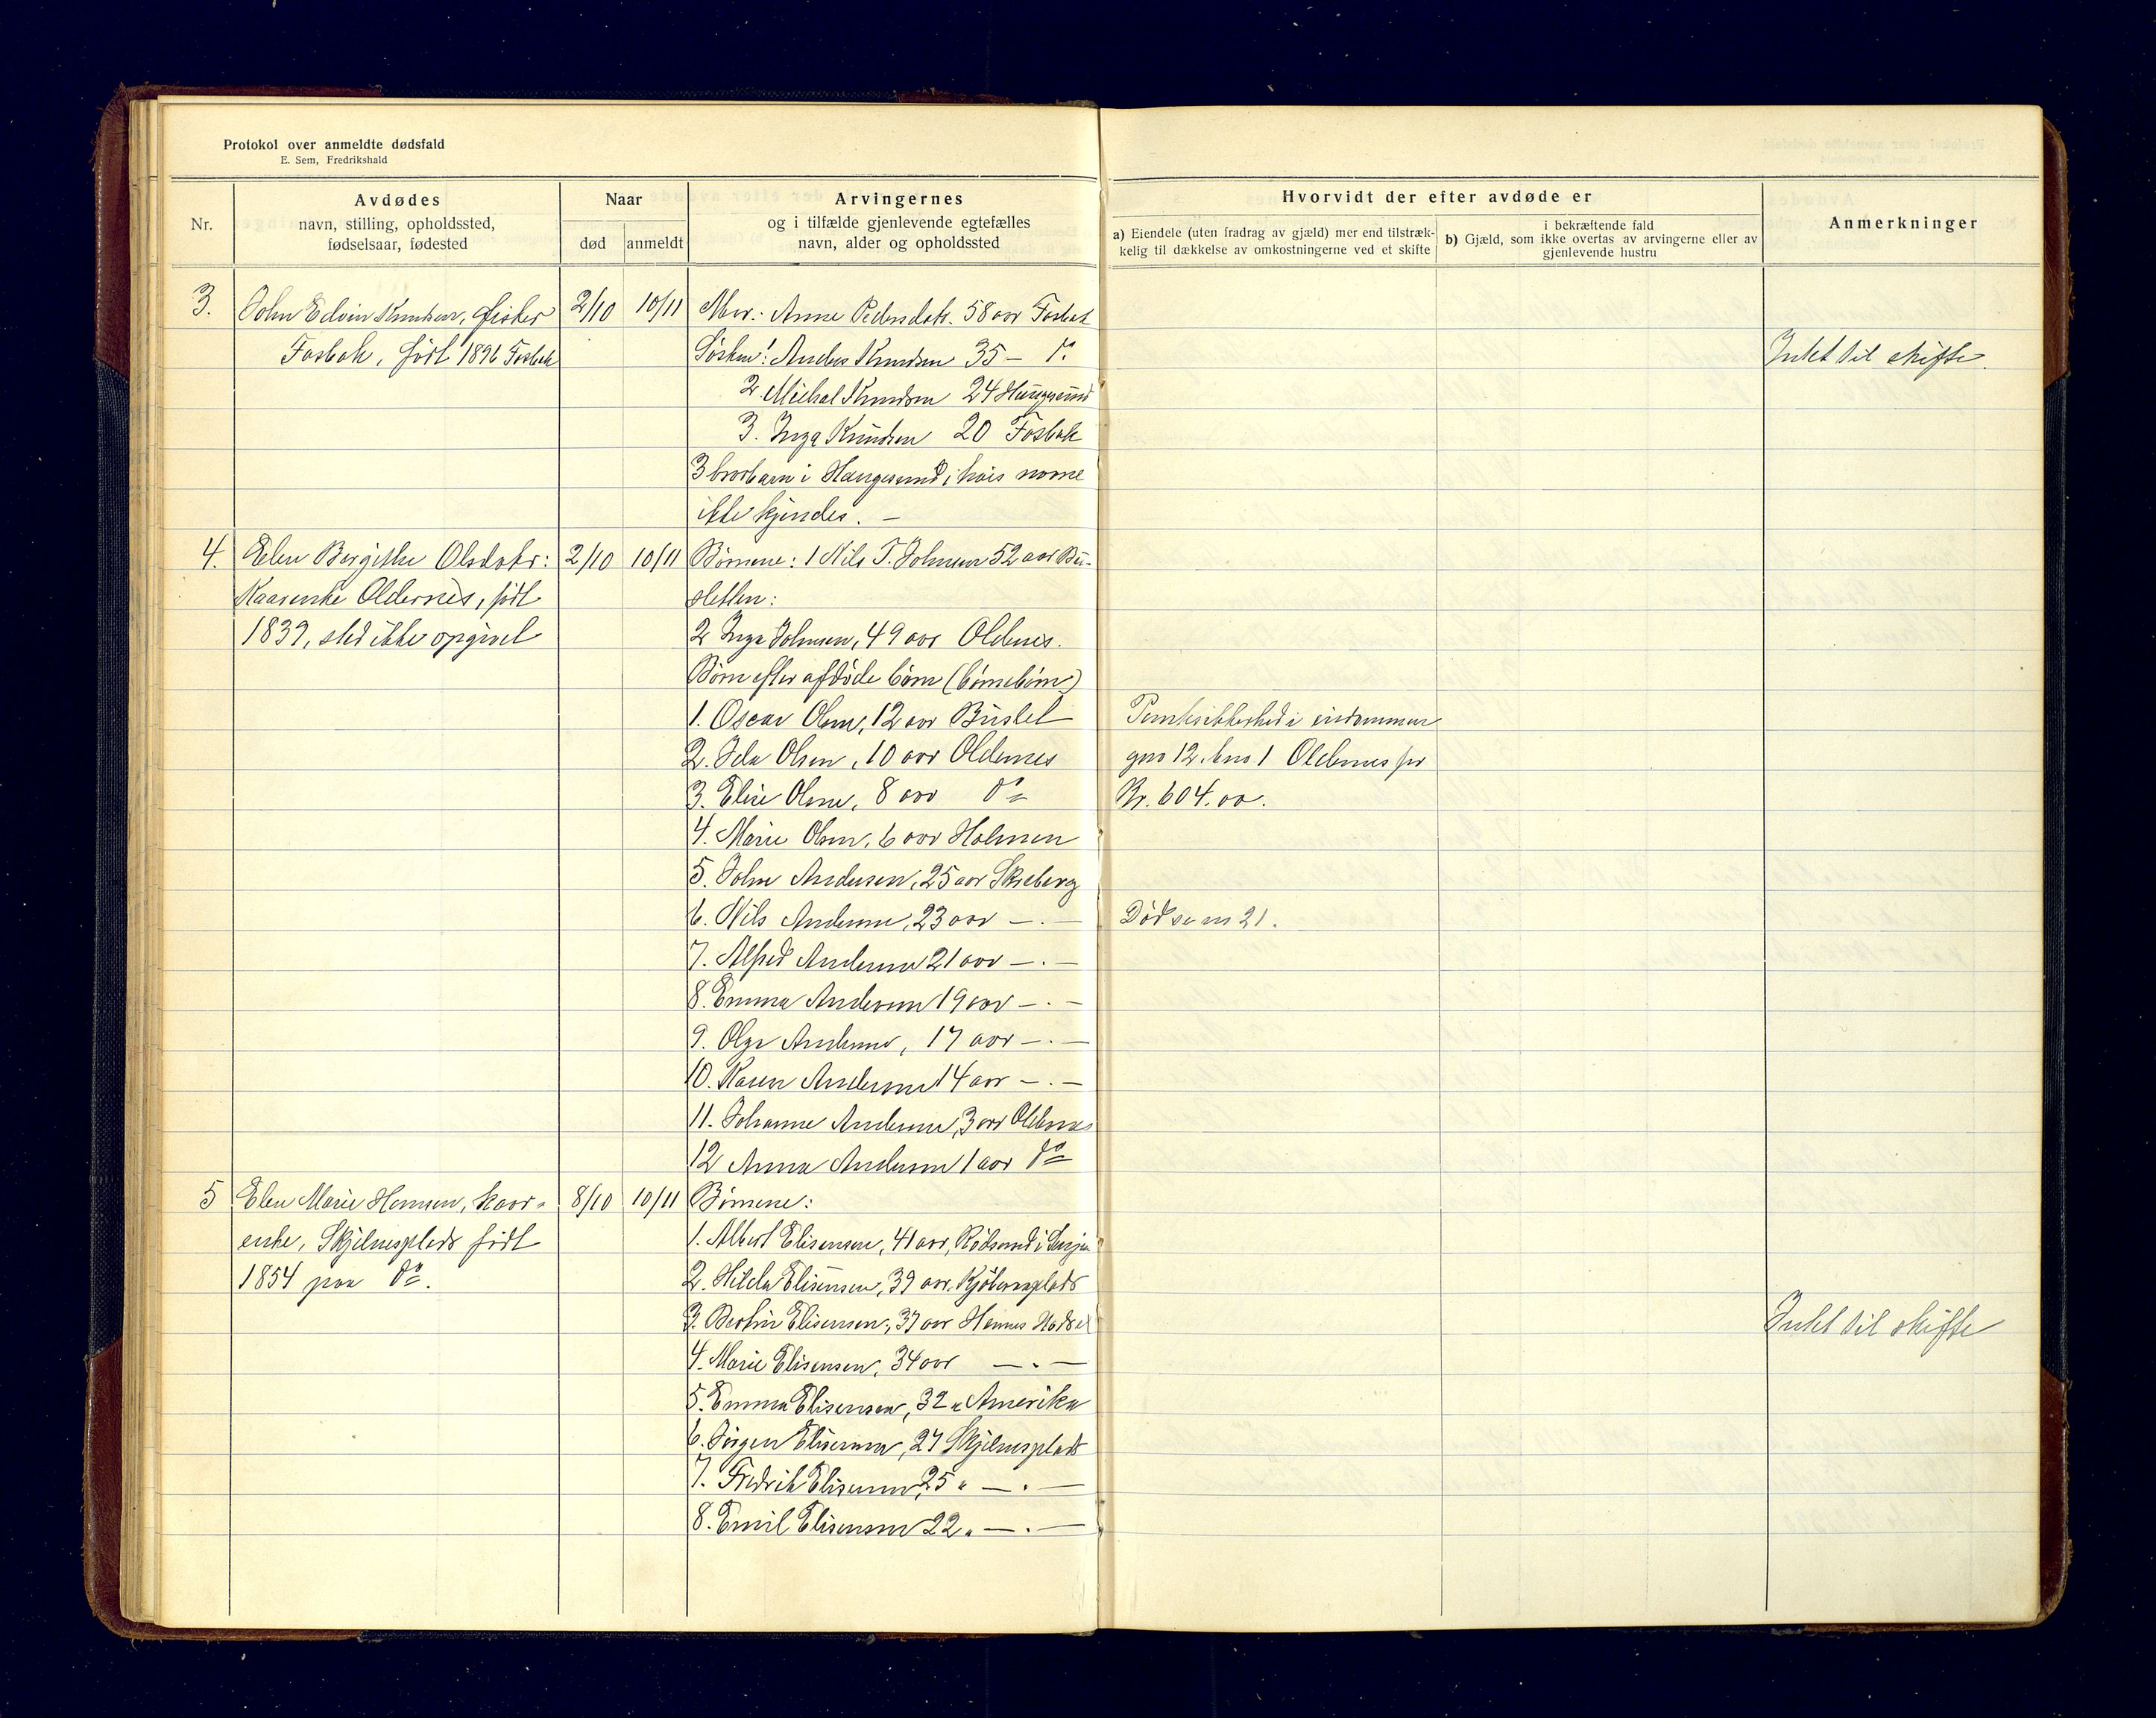 Protokol over anmeldte dødsfald
E. Sem, Fredrikshald
Nr.
Avdødes
navn, stilling, opholdssted,
fødselsaar, fødested
Naar
død
anmeldt
Arvingernes
og i tilfælde gjenlevende egtefælles
navn, alder og opholdssted
Hvorvidt der efter avdøde er
a) Eiendele (uten fradrag av gjæld) mer end tilstræk-
kelig til dækkelse av omkostningerne ved et skifte
i bekræftende fald
b) Gjæld, som ikke overtas av arvingerne eller av
gjenlevende hustru
Anmerkninger
3. John Edvin Knudsen, fisker 2/10 10/11 Mor: Anne Pedersdatr. 58 aar Fosbak
Fosbak, født 1896 Fosbak Søsken: Anders Knudsen 35 – do. Intet til skifte.
2. Mikal Knudsen 24 Haugesund
3. Inga Knudsen 20 Fosbak
3 brorbarn i Haugesund, hvis navne
ikke kjendes. –
4. Elen Bergitte Olsdatr: 2/10 10/11 Børnene: 1 Nils T. Johnsen 52 aar Bu-
Kaarenke Oldernes, født sletten:
1839, sted ikke opgivet 2 Inga Johnsen, 49 aar Oldernes.
Børn efter afdøde børn (børnebørn)
1. Oscar Olsen, 12 aar Buslet
2. Ida Olsen, 10 aar Oldernes gno 12. bno. 1 Oldernes for
3. Elise Olsen, 8 aar do Kr. 604.00.
4. Marie Olsen, 6 aar Holmen
5. John Andersen, 25 aar Skeberg
6. Nils Andersen, 23 aar –.– Dødsa no 21.
7. Alfred Andersen 21 aar –.–
8. Emma Andersen 19 aar –.–
9. Olga Andersen, 17 aar –.–
10. Karen Andersen 14 aar –.–
11. Johanne Andersen, 3 aar Oldernes
12 Anna Andersen 1 aar do
5 Elen Marie Hansen, kaar- 8/10 10/11 Børnene:
enke, Skjelnesplads født 1. Albert Elisensen, 41 aar, Rødsand i Senjen
1854 paa do. 2. Hilda Elisensen, 39 aar,
3. Bertin Elisensen, 37 aar Hennes Hadsel Intet til skifte
4. Marie Elisensen, 34 aar –.–
5. Emma Elisensen, 32 " Amerika
6. Jørgen Elisensen, 27 Skjelnesplads
7. Fredrik Elisensen, 25 " –.–
8. Emil Elisensen 22 " –.–